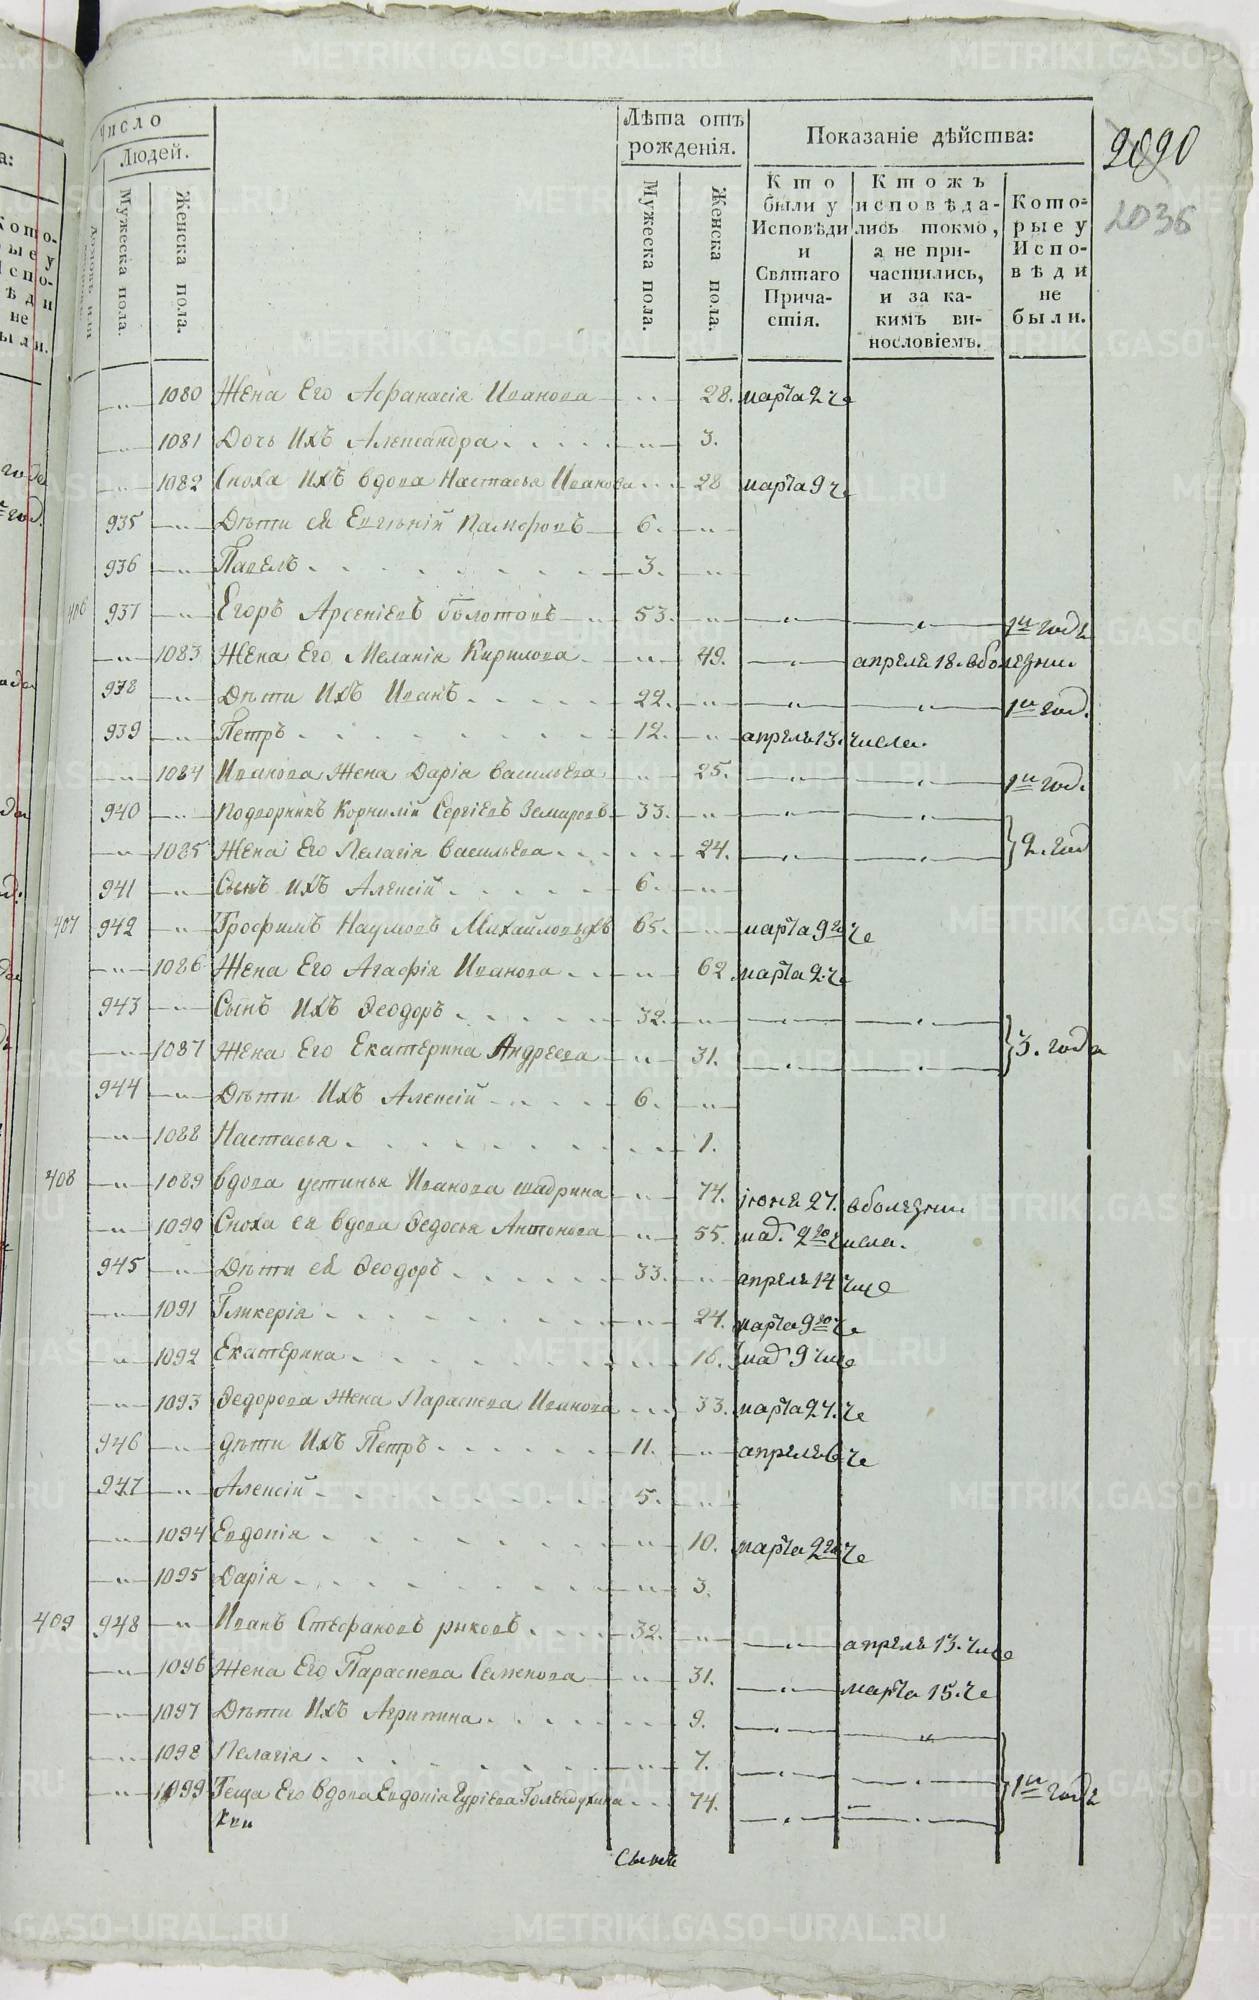 число
Людей.
Лѣта отъ
рожденія.
Показаніе дѣйства:
2090
2036
Мужеска пола.
Женска пола.
Мужеска пола.
Женска пола.
Кто
были у
Исповѣди
и
Святаго
Прича-
стія.
Ктожъ
исповѣда-
лись токмо,
а не при-
частились,
и за ка-
кимъ ви-
нословіемъ.
Кото-
рые у
Испо-
вѣди
не
были.
1080 Жена Его Афанасія Иванова 28. марта 2 че
1081 Дочь Ихъ Александра 3.
1082 Сноха Ихъ вдова Настасья Иванова 28 марта 9 че
935 Дѣти ея Евгеній Памфовъ 6.
936 Павелъ 3.
406 937 Егоръ Арсеніевъ Болотовъ 53. 1й годъ
1083 Жена Его Меланія Кирилова 49. апреля 18. в болезни.
938 Дѣти Ихъ Иванъ 22. 1й год.
939 Петръ 12. апреля 13. числа.
1084 Иванова Жена Дарія Васильева 25. 1й год.
940 Подворникъ Корнилій Сергіевъ Земировъ 33.
1085 Жена Его Пелагія Васильева 24. 2. год
941 Сынъ ихъ Алексій 6.
407 942 Трофимъ Наумовъ Михайловыхъ 65. марта 9го че
1086 Жена Его Агафія Иванова 62 марта 2. че
943 Сынъ Ихъ Феодоръ 32.
1087 Жена Его Екатерина Андреева 31. 3. года
944 Дѣти Ихъ Алексій 6.
1088 Настасья 1.
408 1089 вдова устинья Иванова шадрина 74. іюня 27. в болезни.
1090 Сноха ея вдова Федосья Антонова 55. 2го числа.
945 Дѣти ея Феодоръ 33. апреля 14 числ
1091 Гликерія 24. марта 9го че
1092 Екатерина 16. 9 числ
1093 Федорова Жена Параскева Иванова 33. марта 27. че
946 дѣти Ихъ Петръ 11. апреля 6 че
947 Алексій 5.
1094 Евдокія 10. марта 2го че
1095 Дарія 3.
409 948 Иванъ Стефановъ рыковъ 32. апреля 13. числ
1096 Жена Его Параскева Семенова 31. марта 15. че
1097 Дѣти Ихъ Агрипина 9.
1098 Пелагія 7.
1099 Теща Его вдова Евдокія Гуріева Голендухина 74. 1й годъ